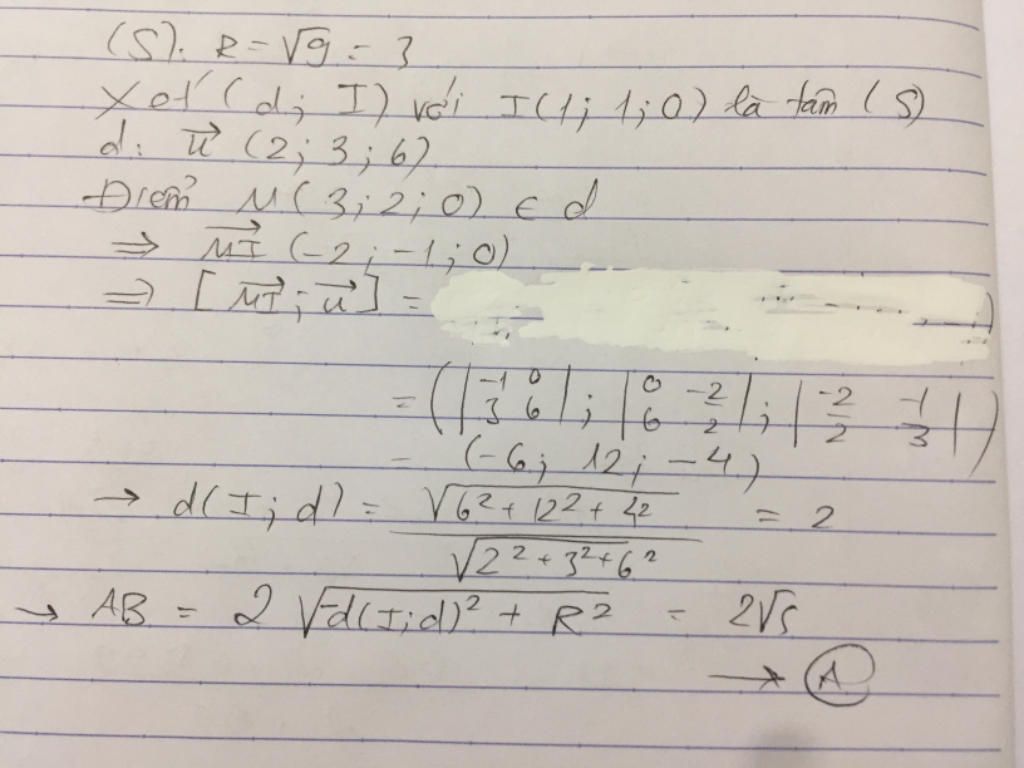 (S): R = √9 = 3
Xét (d; I) với I(1; 1; 0) là tâm (S)
d: u⃗ (2; 3; 6)
Điểm M(3; 2; 0) ∈ d
⇒ MI⃗ (-2; -1; 0)
⇒ [MI⃗; u⃗] =
= (|-1 0; 3 6|; |0 -2; 6 2|; |-2 -1; 2 3|)
= (-6; 12; -4)
→ d(I; d) = √(6² + 12² + 4²) / √(2² + 3² + 6²) = 2
→ AB = 2 √(-d(I; d)² + R²) = 2√5
→ A